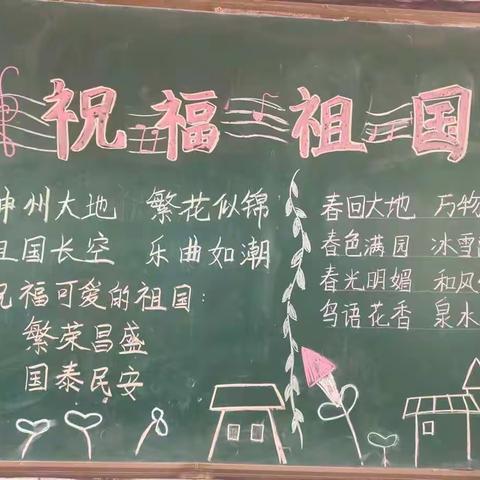 祝福祖国
神州大地 繁花似锦
祖国长空 乐曲如潮
祝福可爱的祖国：
繁荣昌盛
国泰民安
春回大地 万物
春色满园 冰雪
春光明媚 和风
鸟语花香 泉水